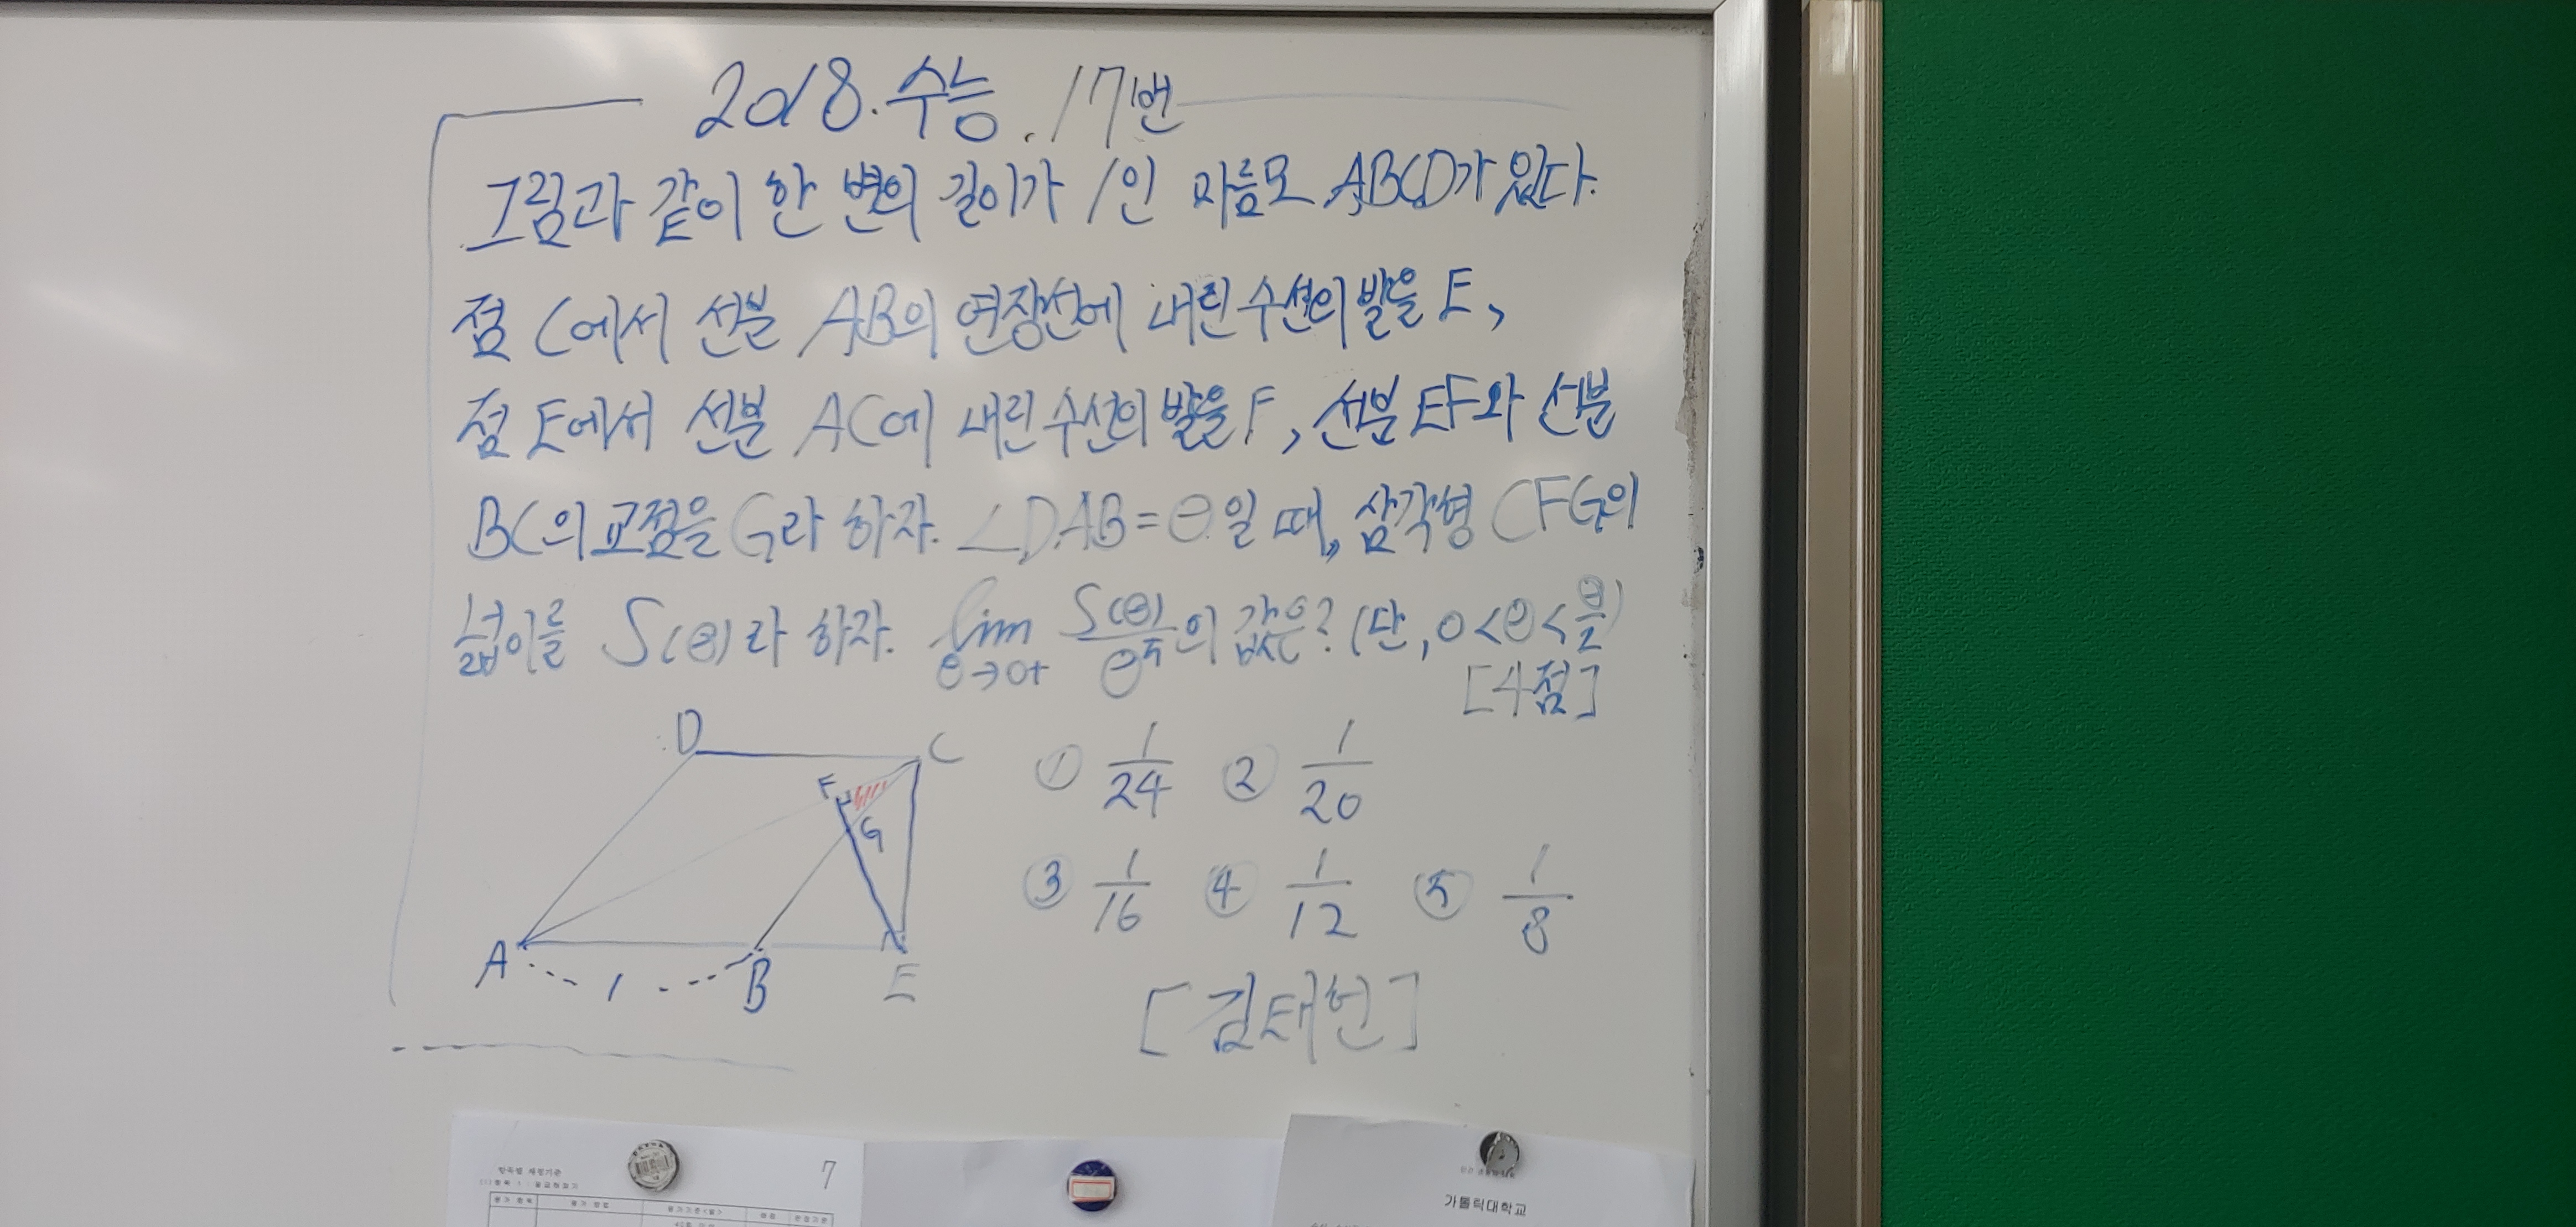 2018.수능.17번
그림과 같이 한 변의 길이가 1인 마름모 ABCD가 있다.
점 C에서 선분 AB의 연장선에 내린 수선의 발을 E,
점 E에서 선분 AC에 내린 수선의 발을 F, 선분 EF와 선분
BC의 교점을 G라 하자. ∠DAB=θ일 때, 삼각형 CFG의
넓이를 S(θ)라 하자. lim θ→0+ S(θ)/θ⁵의 값은? (단, 0<θ<θ/2)
[4점]
D C
F
G
A 1 B E
① 1/24 ② 1/20
③ 1/16 ④ 1/12 ⑤ 1/8
[김태헌]
7
가톨릭대학교